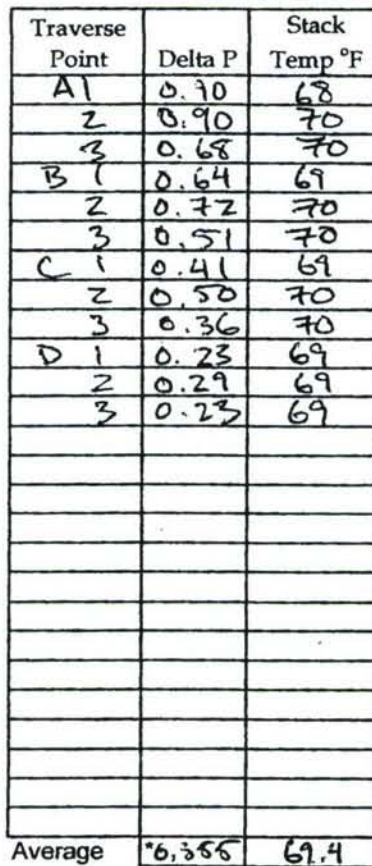 Traverse Point Delta P Stack Temp °F
A 1 0.70 68
2 0.90 70
3 0.68 70
B 1 0.64 69
2 0.72 70
3 0.51 70
C 1 0.41 69
2 0.50 70
3 0.36 70
D 1 0.23 69
2 0.29 69
3 0.23 69
Average 69.4